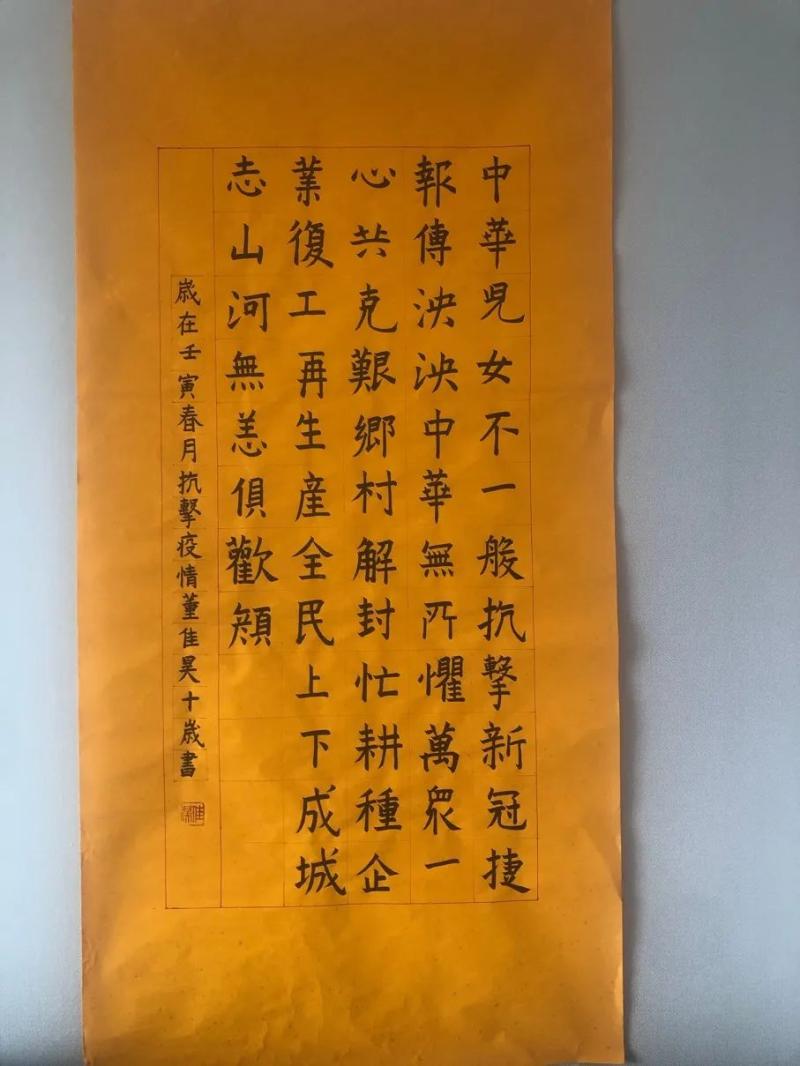 中華兒女不一般抗擊新冠捷
報傳泱泱中華無所懼萬眾一
心共克艱鄉村解封忙耕種企
業復工再生産全民上下成城
志山河無恙俱歡顔
歲在壬寅春月抗擊疫情董佳昊十歲書